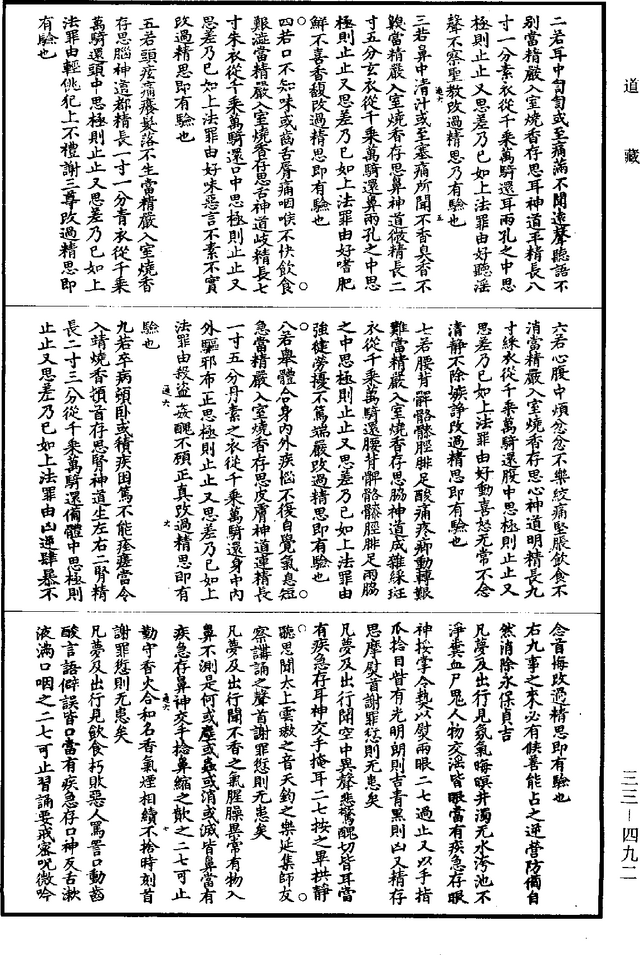 道藏
二若耳中訇訇或至痛滿不聞遠聲聽語不
別當精嚴入室燒香存思耳神道平精長八
寸一分素衣從千乘萬騎還耳兩孔之中思
極則止止又思差乃已如上法罪由好聽淫
聲不察聖教改過精思乃有驗也
三若鼻中清汁或至塞痛所聞不香臭香不
當精嚴入室燒香存思鼻神道微精長二
寸五分玄衣從千乘萬騎還鼻兩孔之中思
極則止止又思差乃已如上法罪由好嗜肥
鮮不喜香馥改過精思即有驗也
四若口不知味或齒舌脣痛咽喉不快飲食
艱澁當精嚴入室燒香存思舌神道歧精長七
寸朱衣從千乘萬騎還口中思極則止止又
思差乃已如上法罪由好味惡言不素不實
改過精思即有驗也
五若頭痃痛癢髮落不生當精嚴入室燒香
存思腦神道都精長一寸一分青衣從千乘
萬騎還頭中思極則止止又思差乃已如上
法罪由輕佻犯上不禮謝三尊改過精思即
有驗也
六若心腹中煩忿忿不樂絞痛堅脹飲食不
消當精嚴入室燒香存思心神道明精長九
寸綵衣從千乘萬騎還腹中思極則止止又
思差乃已如上法罪由好動喜怒无常不念
清靜不除嫉諍改過精思即有驗也
七若腰背髀骼髂脛腓足酸痛疼痺動轉艱
難當精嚴入室燒香存思脇神道成雜綵斑
衣從千乘萬騎還腰背髀骼髂脛腓足兩脇
之中思極則止止又思差乃已如上法罪由
強健勞擾不篤端嚴改過精思即有驗也
八若舉體合身內外疾惱不復自覺氣息短
急當精嚴入室燒香存思皮膚神道連精長
一寸五分丹素之衣從千乘萬騎還身中內
外驅邪布正思極則止止又思差乃已如上
法罪由殺盜姦醜不顧正真改過精思即有
驗也
九若卒病頓卧或積疾困篤不能痊瘥當令
入靖燒香撗首存思腎神道生左右二腎精
長二寸三分從千乘萬騎還備體中思極則
止止又思差乃已如上法罪由凶逆肆暴不
念首悔改過精思即有驗也
右九事之來必有候善能占之逆營防備自
然消除永保貞吉
凡夢及出行見氛氣晦暝井濁无水洿池不
淨糞血尸鬼人物交淫皆眼當有疾急存眼
神挼掌令熱以熨兩眼二七過止又以手指
爪捻目眥有光明朗則吉青黑則凶又精存
思摩熨首謝罪愆則无患矣
凡夢及出行聞空中異聲悲驚醜切皆耳當
有疾急存耳神交手掩耳二七按之畢拱靜
聽思聞太上雲璈之音天鈞之樂延集師友
察講誦之聲首謝罪愆則无患矣
凡夢及出行聞不香之氣腥臊異常有物入
鼻不測是何或塵或蟲或消或滅皆鼻當有
疾急存鼻神交手捻鼻縮之歙之二七可止
勤守香火合和名香氣煙相續不捨時刻首
謝罪愆則无患矣
凡夢及出行見飲食朽敗惡人罵詈口動齒
酸言語僻誤皆口當有疾急存口神反舌漱
液滿口咽之二七可止習誦要戒密呪微吟
三三－四九二